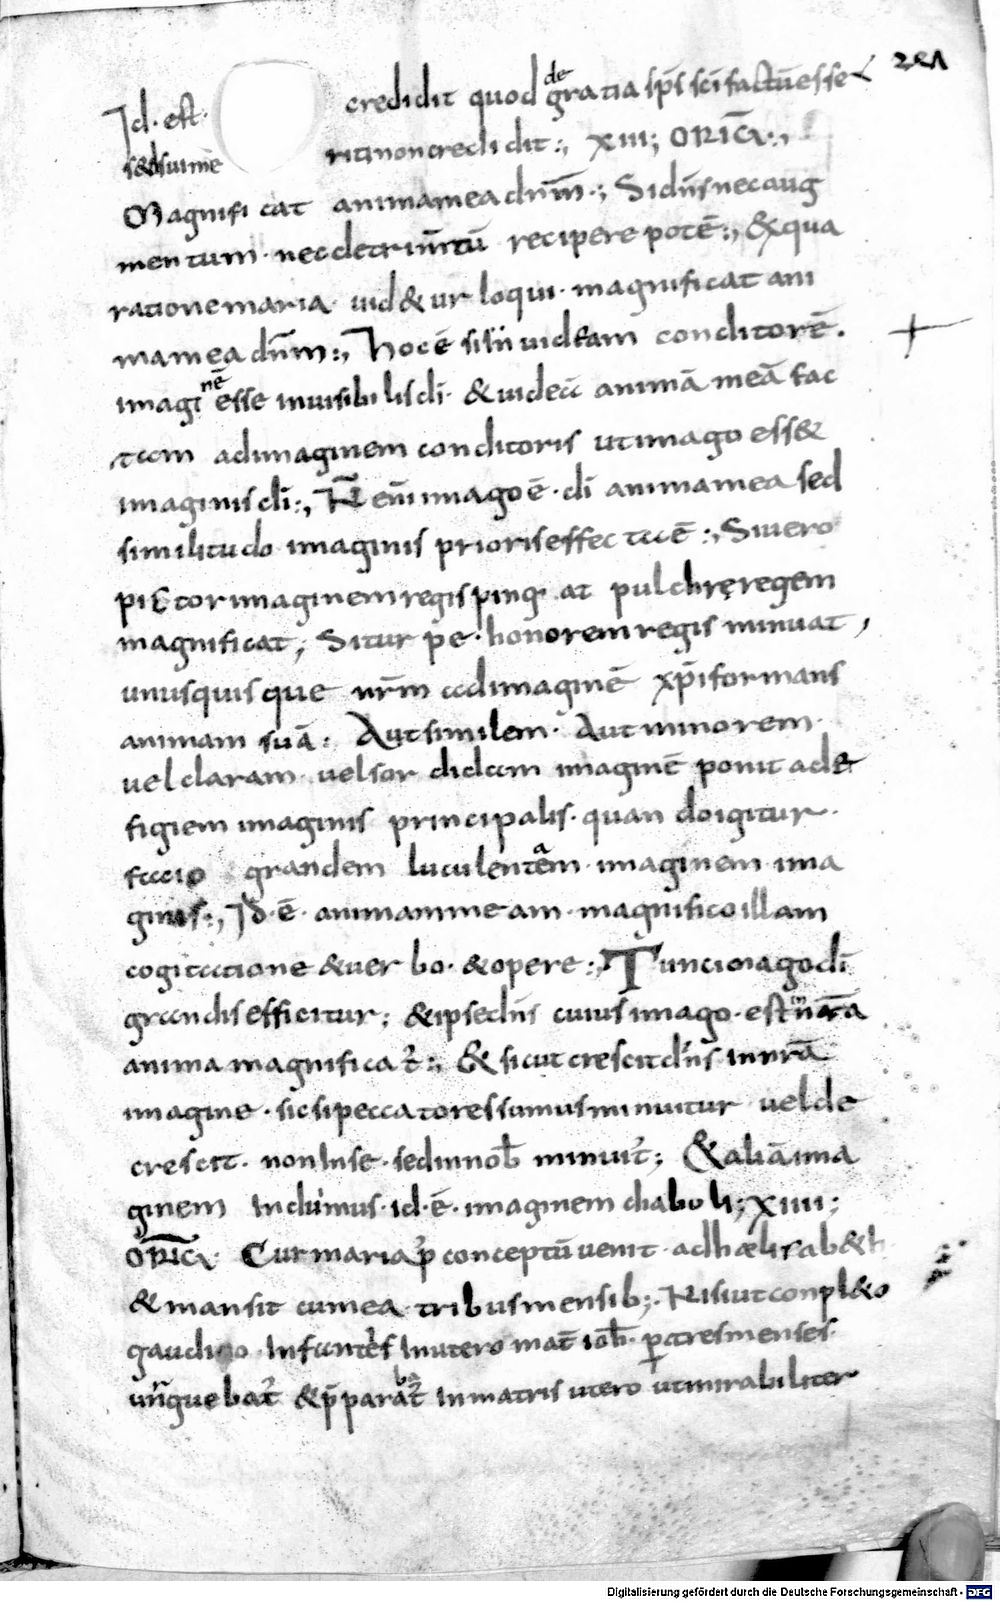 221
Id· est· credidit quod de gratia sp̄s sc̄i factū esse
sed suime ritinoncredidit:, XIII; ORIG̅:,
Magnificat animamea dnm̄·; Sidn̄s nec aug
mentum· nec detrim̄tū recipere potē:, & qua
ratione maria· uid&ur loqui· magnificat ani
mamea dn̄m:, hoc ē sisiu uideam conditorē.
imaginē esse inuisibilis di· & uideā animā meā fac
tam ad imaginem conditoris ut imago ess&
imaginis di:, N̄ eni imago ē· di animamea sed
similitudo imaginis prioris effecta ē:, Si uero
pictor imaginem regis pinq· at pulchrę regem
magnificat; Si turpe· honorem regis minuat,
unusquisque nr̄m ad imaginē xp̄i formans
animam suā: Aut similem· Aut minorem·
uel claram· uel sordidam imaginē ponit ad&
figiem imaginis principalis· quando igitur·
facio grandem luculentām· imaginem ima
ginis:, Id· ē· animammeam· magnifico illam
cogitatione & uerbo· & opere:, Tunc imago di
grandis efficitur; & ipse dn̄s cuius imago· est in nr̄a
anima magnificat̄:, & sicut crescit dn̄s in nr̄a
imagine· sic si peccatores sumus minuitur uel de
crescit· non in se· sed in nob̄ minuit̄; & aliā ima
ginem Induimus· id· ē· imaginem diaboli; XIIII;
ORIG̅· Cur maria p̄ conceptū uenit· ad hælisab&h
& mansit cum ea tribus mensib;· Nisi ut conpl&o
gaudio Infantes In utero mat̄ ioh̄· p tres menses·
unguebat̄ & p̄parabat̄ In matris utero ut mirabiliter
Digitalisierung gefördert durch die Deutsche Forschungsgemeinschaft - DFG